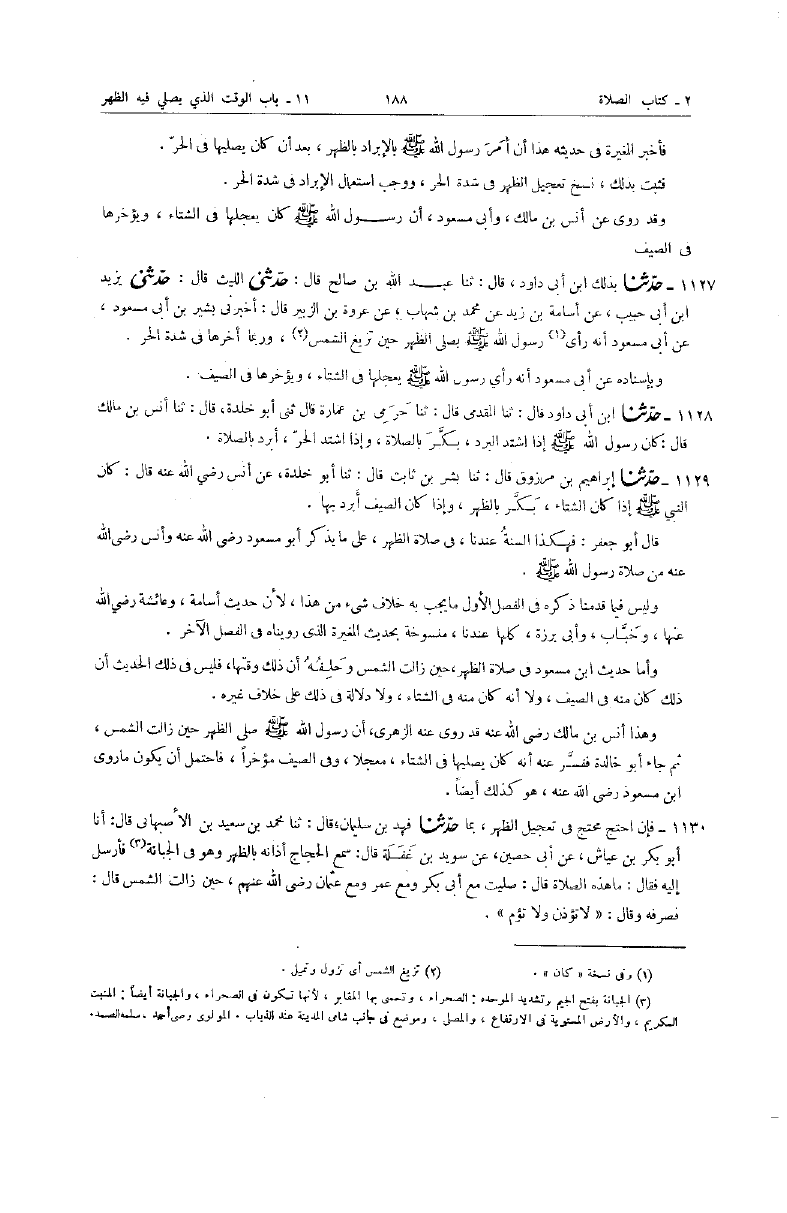 ٢ - كتاب الصلاة ١٨٨ ١١ - باب الوقت الذي يصلي فيه الظهر
فأخبر المغيرة فى حديثه هذا أن أمرَ رسول الله ﷺ بالإبراد بالظهر ، بعد أن كان يصليها فى الحرّ .
فثبت بذلك ، نسخ تعجيل الظهر فى شدة الحر ، ووجب استعمال الإبراد فى شدة الحر .
وقد روى عن أنس بن مالك ، وأبى مسعود ، أن رسول الله ﷺ كان يعجلها فى الشتاء ، ويؤخرها
فى الصيف
١١٢٧ - حدّثنا بذلك ابن أبى داود ، قال : ثنا عبد الله بن صالح قال : حدّثنى الليث قال : حدّثنى يزيد
ابن أبى حبيب ، عن أسامة بن زيد عن محمد بن شهاب ، عن عروة بن الزبير قال : أخبرنى بشير بن أبى مسعود ،
عن أبى مسعود أنه رأى(١) رسول الله ﷺ يصلى الظهر حين تزيغ الشمس(٢) ، وربما أخرها فى شدة الحر .
وبإسناده عن أبى مسعود أنه رأي رسول الله ﷺ يعجلها فى الشتاء ، ويؤخرها فى الصيف .
١١٢٨ - حدّثنا ابن أبى داود قال : ثنا المقدمى قال : ثنا حَرَمِى بن عمارة قال ثنى أبو خلدة، قال : ثنا أنس بن مالك
قال : كان رسول الله ﷺ إذا اشتد البرد ، بكَّرَ بالصلاة ، وإذا اشتد الحرّ ، أبرد بالصلاة .
١١٢٩ - حدّثنا إبراهيم بن مرزوق قال : ثنا بشر بن ثابت قال : ثنا أبو خلدة، عن أنس رضي الله عنه قال : كان
النبي ﷺ إذا كان الشتاء ، بَكَّر بالظهر ، وإذا كان الصيف أبرد بها .
قال أبو جعفر : فهكذا السنةُ عندنا ، فى صلاة الظهر ، على ما يذكر أبو مسعود رضى الله عنه وأنس رضى الله
عنه من صلاة رسول الله ﷺ .
وليس فيما قدمنا ذكره فى الفصل الأول مايجب به خلاف شىء من هذا ، لأن حديث أسامة ، وعائشة رضي الله
عنها ، وخبَّاب ، وأبى برزة ، كلها عندنا ، منسوخة بحديث المغيرة الذى رويناه فى الفصل الآخر .
وأما حديث ابن مسعود فى صلاة الظهر، حين زالت الشمس وحَلِفُهُ أن ذلك وقتها، فليس فى ذلك الحديث أن
ذلك كان منه فى الصيف ، ولا أنه كان منه فى الشتاء ، ولا دلالة فى ذلك على خلاف غيره .
وهذا أنس بن مالك رضى الله عنه قد روى عنه الزهرى، أن رسول الله ﷺ صلى الظهر حين زالت الشمس ،
ثم جاء أبو خالدة ففسَّر عنه أنه كان يصليها فى الشتاء ، معجلا ، وفى الصيف مؤخراً ، فاحتمل أن يكون ماروى
ابن مسعود رضى الله عنه ، هو كذلك أيضاً .
١١٣٠ - فإن احتج محتج فى تعجيل الظهر ، بما حدّثنا فهد بن سليمان، قال : ثنا محمد بن سعيد بن الأصبهانى قال: أنا
أبو بكر بن عياش ، عن أبى حصين، عن سويد بن غَفَلَة قال: سمع الحجاج أذانه بالظهر وهو فى الجبانة(٣) فأرسل
إليه فقال : ماهذه الصلاة قال : صليت مع أبى بكر ومع عمر ومع عثمان رضى الله عنهم ، حين زالت الشمس قال :
فصرفه وقال : « لاتؤذن ولا تؤم » .
(١) وفى نسخة « كان » . (٢) تزيغ الشمس أى تزول وتميل .
(٣) الجبانة بفتح الجيم وتشديد الموحده : الصحراء ، وتسمى بها المقابر ، لأنها تكون فى الصحراء ، والجبانة أيضاً : المنبت
الكريم ، والأرض المستوية فى الارتفاع ، والمصلى ، وموضع فى جانب شامى المدينة عند الذباب . المولوى وصى أحمد ، سلمه الصمد.